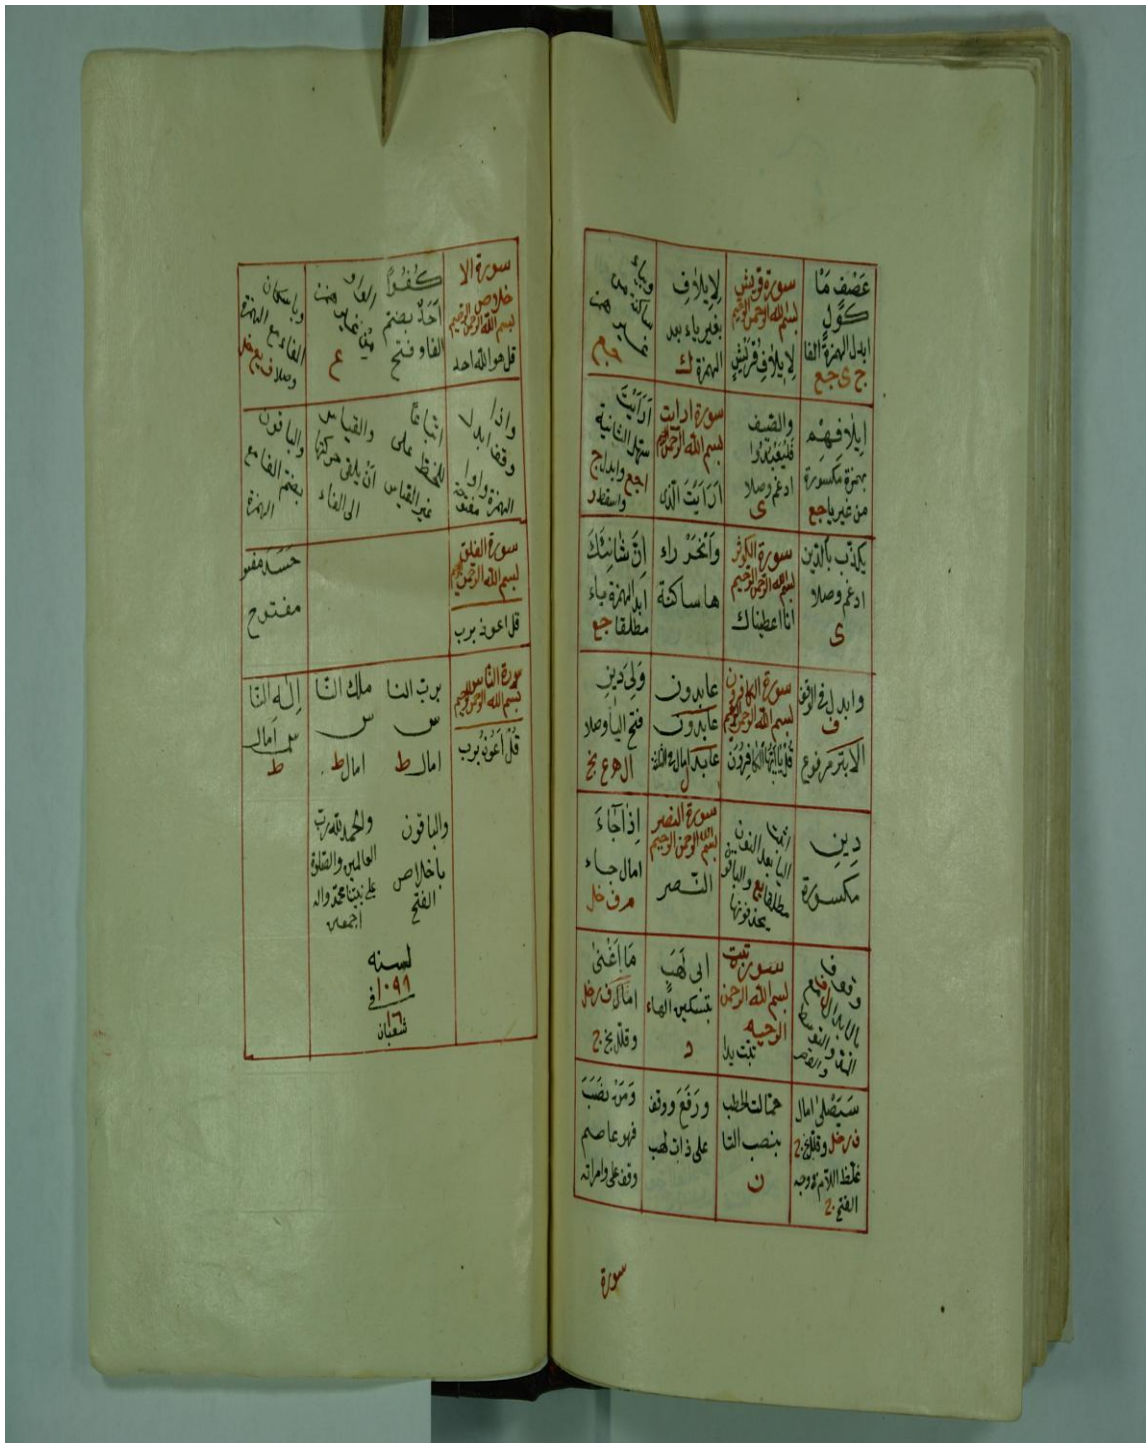 عَصْفٍ مَا
كُولٍ
ابدل الهمزة الفا
ج ى جع
سورة قريش
بسم الله الرحمن الرحيم
لِإيلافِ قُرَيْشٍ
لِإيلافِ
بغير ياء بعد
الهمزة ك
وبياء
ساكنة من
غير همز
جع
إيلافِهِمْ
بهمزة مكسورة
من غير يا جع
والصيف
فَلْيَعْبُدُوا
ادغم وصلا
ى
سورة ارايت
بسم الله الرحمن الرحيم
اَرَاَيْتَ الَّذى
اَرَاَيْتَ
سهل الثانية
اجع وابدل ج
واسقط ر
يكذب بالدين
ادغم وصلا
ى
سورة الكوثر
بسم الله الرحمن الرحيم
انا اعطيناك
وَانْحَرْ راء
ها ساكنة
اِنَّ شَانِئَكَ
ابدل الهمزة ياء
مطلقا جع
وابدل فى الوقف
ف
الابتر مرفوع
سورة الكافرون
بسم الله الرحمن الرحيم
قُلْ يَااَيُّهَا الْكَافِرُونَ
عابدون
عابدون
عابد امال
وَلِىَ دِينِ
فتح اليا وصلا
ال ه ع بخ
دِينِ
مكسورة
اثبت
اليا بعد النون
مطلقا يع والباقون
يحذفونها
سورة النصر
بسم الله الرحمن الرحيم
النَّصر
اِذَا جَاءَ
امال جاء
م ف خل
وقوفا
بالابدال
المد والتوسط
والقصر
سورة تبت
بسم الله الرحمن
الرحيم
تبّت يدا
ابى لَهَبٍ
بتسكين الهاء
د
مَا اَغْنَى
امال ف ر خل
وقلل بخ ج
سَيَصْلَى امال
ف ر خل وقلل بخ ج
غلظ اللام مع وجه
الفتح ج
حمالت الحطب
بنصب التا
ن
ورَفَعَ ووقف
على ذات لهب
وَمَنْ نصَبَ
فهو عاصم
وقف على وامراته
سورة
سورة الا
خلاص
بسم الله الرحمن الرحيم
قل هو الله احد
كُفُوًا
اَحَدٌ بضم
الفا وفتح
الواو
من غير همز
ع
وباسكان
الفاء مع الهمزة
وصلا ف يع خل
واذا
وقف ابدلا
الهمزة واوا
مفتوحة
اتباعًا
للخط على
غير القياس
والقياس
اَنْ يلقى حركتها
الى الفاء
والباقون
بضم الفا مع
الهمزة
سورة الفلق
بسم الله الرحمن الرحيم
قل اعوذ برب
حَسَدَ مفتو
مفتوح
سورة الناس
بسم الله الرحمن الرحيم
قُلْ اَعُوذُ بِرَب
برب النا
س
امال ط
ملك النا
س
امال ط
اِلَه النا
س امال
ط
والباقون
باخلاص
الفتح
والحمد لله رب
العالمين والصلوة
على نبينا محمد واله
اجمعين
لسنه
١٠٩٩ فى
١٦
شعبان